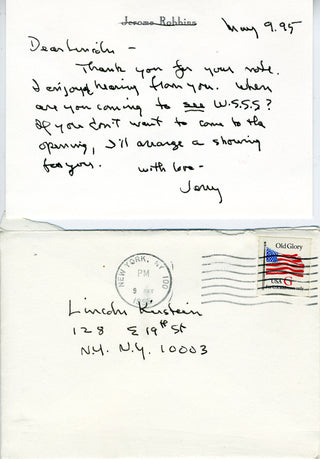 Jerome Robbins
May 9.95
Dear Lincoln -
Thank you for your note.
I enjoyed hearing from you. When
are you coming to see W.S.S.S?
If you don't want to come to the
opening, I'll arrange a showing
for you.
with love -
Jerry
NEW YORK, NY 100
PM
9 MAY
Old Glory
USA G
For U.S. addresses only
Lincoln Kirstein
128 E 19th St
N.Y. N.Y. 10003